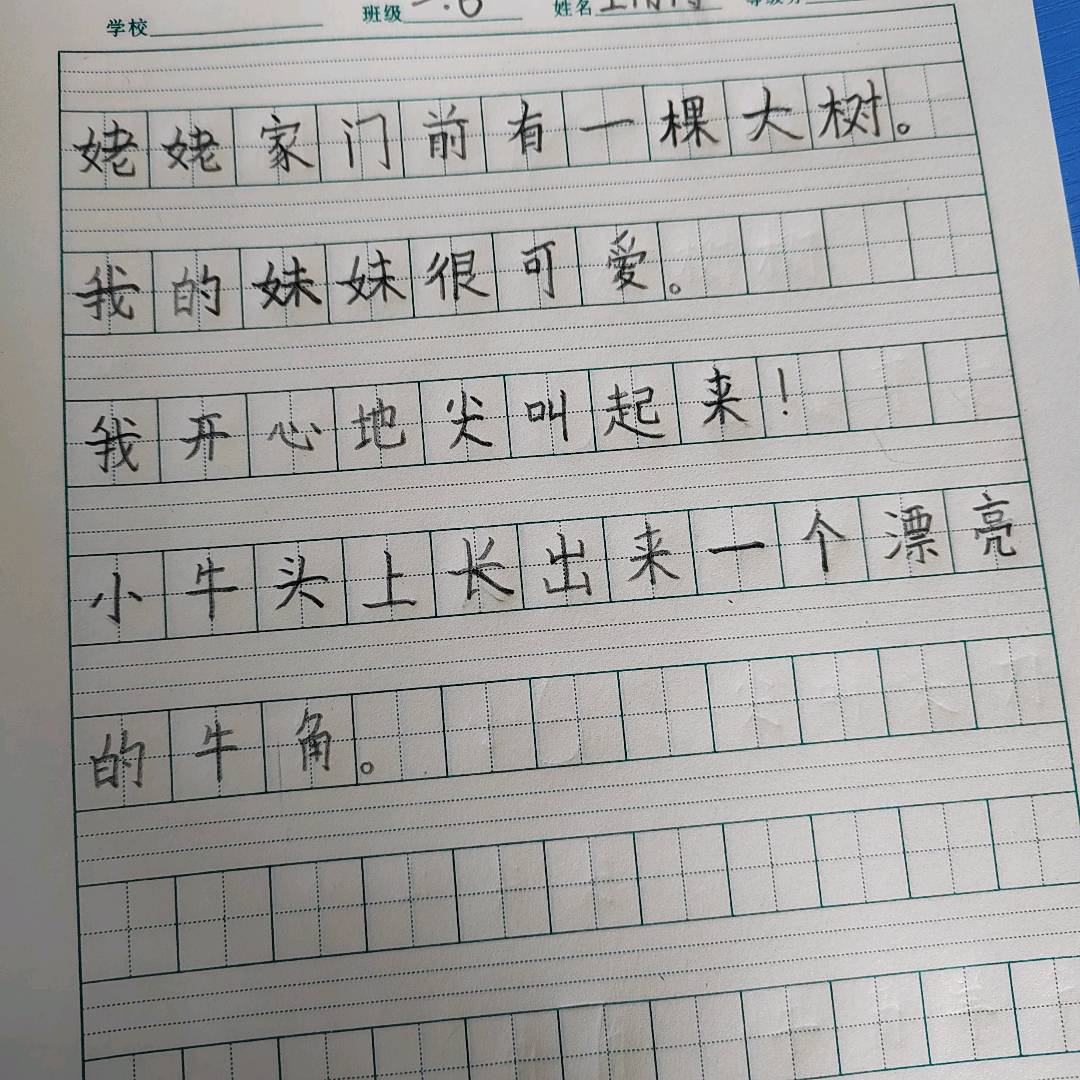 学校 班级 姓名
姥姥家门前有一棵大树。
我的妹妹很可爱。
我开心地尖叫起来！
小牛头上长出来一个漂亮
的牛角。